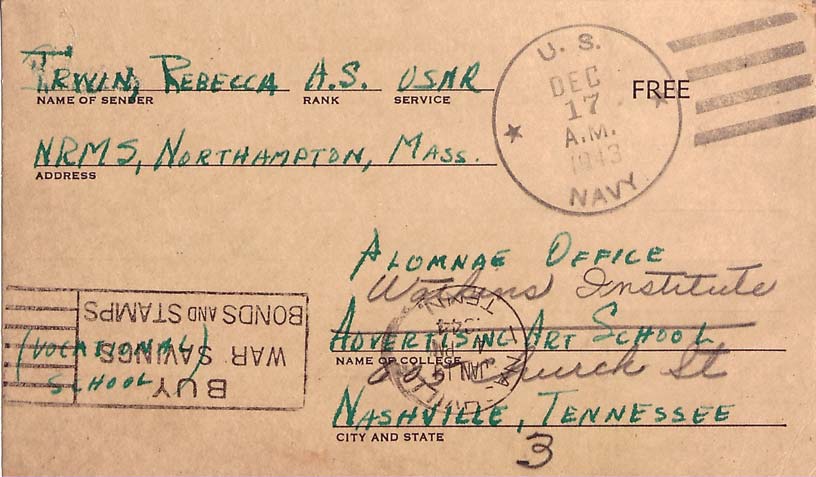 IRWIN, REBECCA A.S. USNR
NAME OF SENDER RANK SERVICE
NRMS, NORTHAMPTON, MASS.
ADDRESS
U. S.
DEC
17
A.M.
1943
NAVY
FREE
ALUMNAE OFFICE
Watkins Institute
ADVERTISING ART SCHOOL
NAME OF COLLEGE
Church St
NASHVILLE, TENNESSEE
CITY AND STATE
3
BUY
WAR SAVINGS
BONDS AND STAMPS
(VOCATIONAL
SCHOOL)
JAN
TENN.